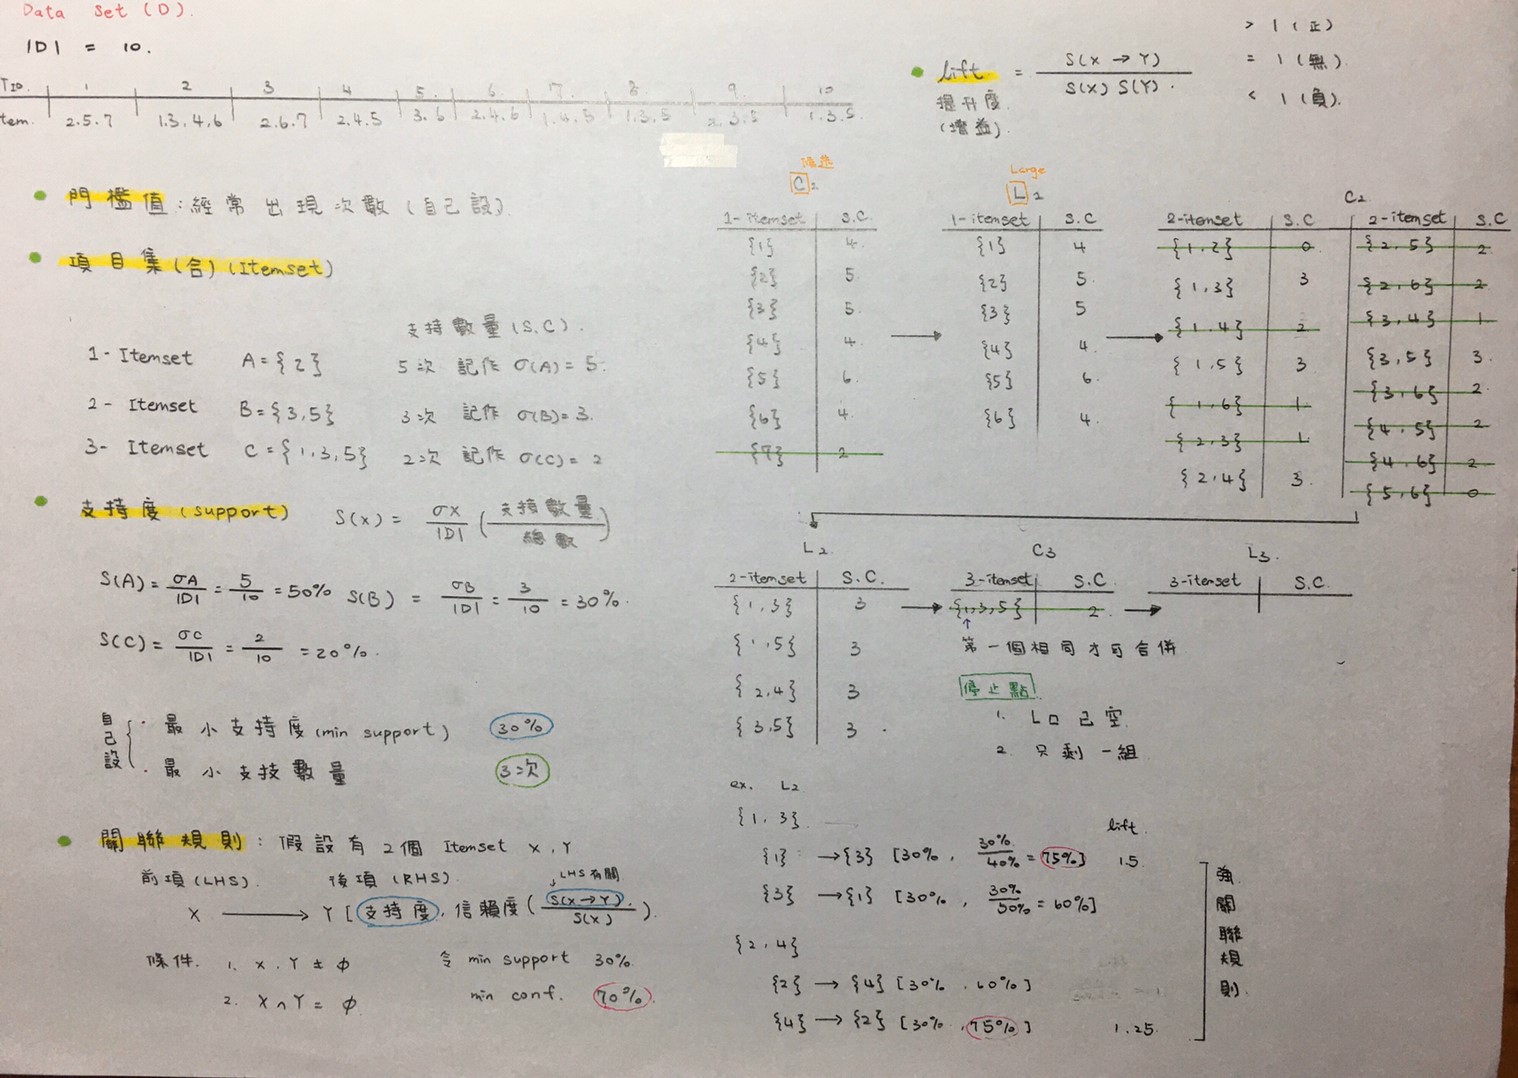 Data Set (D).
|D| = 10.
TID. 1 2 3 4 5. 6. 7. 8. 9. 10
tem. 2.5.7 1.3.4.6 2.6.7 2.4.5 3.6 2.4.6 1.4.5 1.3.5 2.3.5 1.3.5
門檻值:經常出現次數(自己設)
項目集(合)(Itemset)
支持數量(S.C).
1- Itemset A={2} 5次 記作 σ(A)=5.
2- Itemset B={3,5} 3次 記作 σ(B)=3.
3- Itemset C={1,3,5} 2次 記作 σ(C)=2
支持度(support) S(x)= σX/|D| (支持數量/總數)
S(A)=σA/|D|=5/10=50% S(B) = σB/|D|=3/10=30%.
S(C)=σC/|D|=2/10=20%.
自己設{
· 最小支持度(min support) 30%
· 最小支技數量 3次
關聯規則:假設有2個 Itemset X,Y
前項(LHS). 後項(RHS). LHS有關
X → Y [支持度,信賴度(S(X→Y)/S(X)).
條件. 1. X,Y ± ϕ 令 min support 30%.
2. X∩Y=ϕ min conf. 70%
lift = S(X→Y)/S(X) S(Y).
提升度.
(增益).
> 1 (正)
= 1 (無).
< 1 (負).
候選
C2
1-itemset S.C.
{1} 4.
{2} 5.
{3} 5.
{4} 4.
{5} 6.
{6} 4.
{7} 2
Large
L2
1-itemset S.C.
{1} 4
{2} 5.
{3} 5
{4} 4.
{5} 6.
{6} 4.
C2
2-itemset S.C 2-itemset S.C
{1,2} 0 {2,5} 2
{1,3} 3 {2,6} 2
{1,4} 2 {3,4} 1
{1,5} 3 {3,5} 3.
{1,6} 1 {3,6} 2
{2,3} 1 {4,5} 2
{2,4} 3. {4,6} 2
{5,6} 0
L2
2-itemset S.C.
{1,3} 3
{1,5} 3
{2,4} 3
{3,5} 3
C3
3-itemset S.C.
{1,3,5} 2
第一個相同才可合併
L3
3-itemset S.C.
停止點
1. L口已空.
2. 只剩一組
ex. L2
{1,3} lift.
{1} →{3} [30%, 30%/40%=75%] 1.5
{3} →{1} [30%, 30%/50%=60%]
{2,4}
{2} → {4} [30%, 60%]
{4} → {2} [30%, 75%] 1.25
強關聯規則.